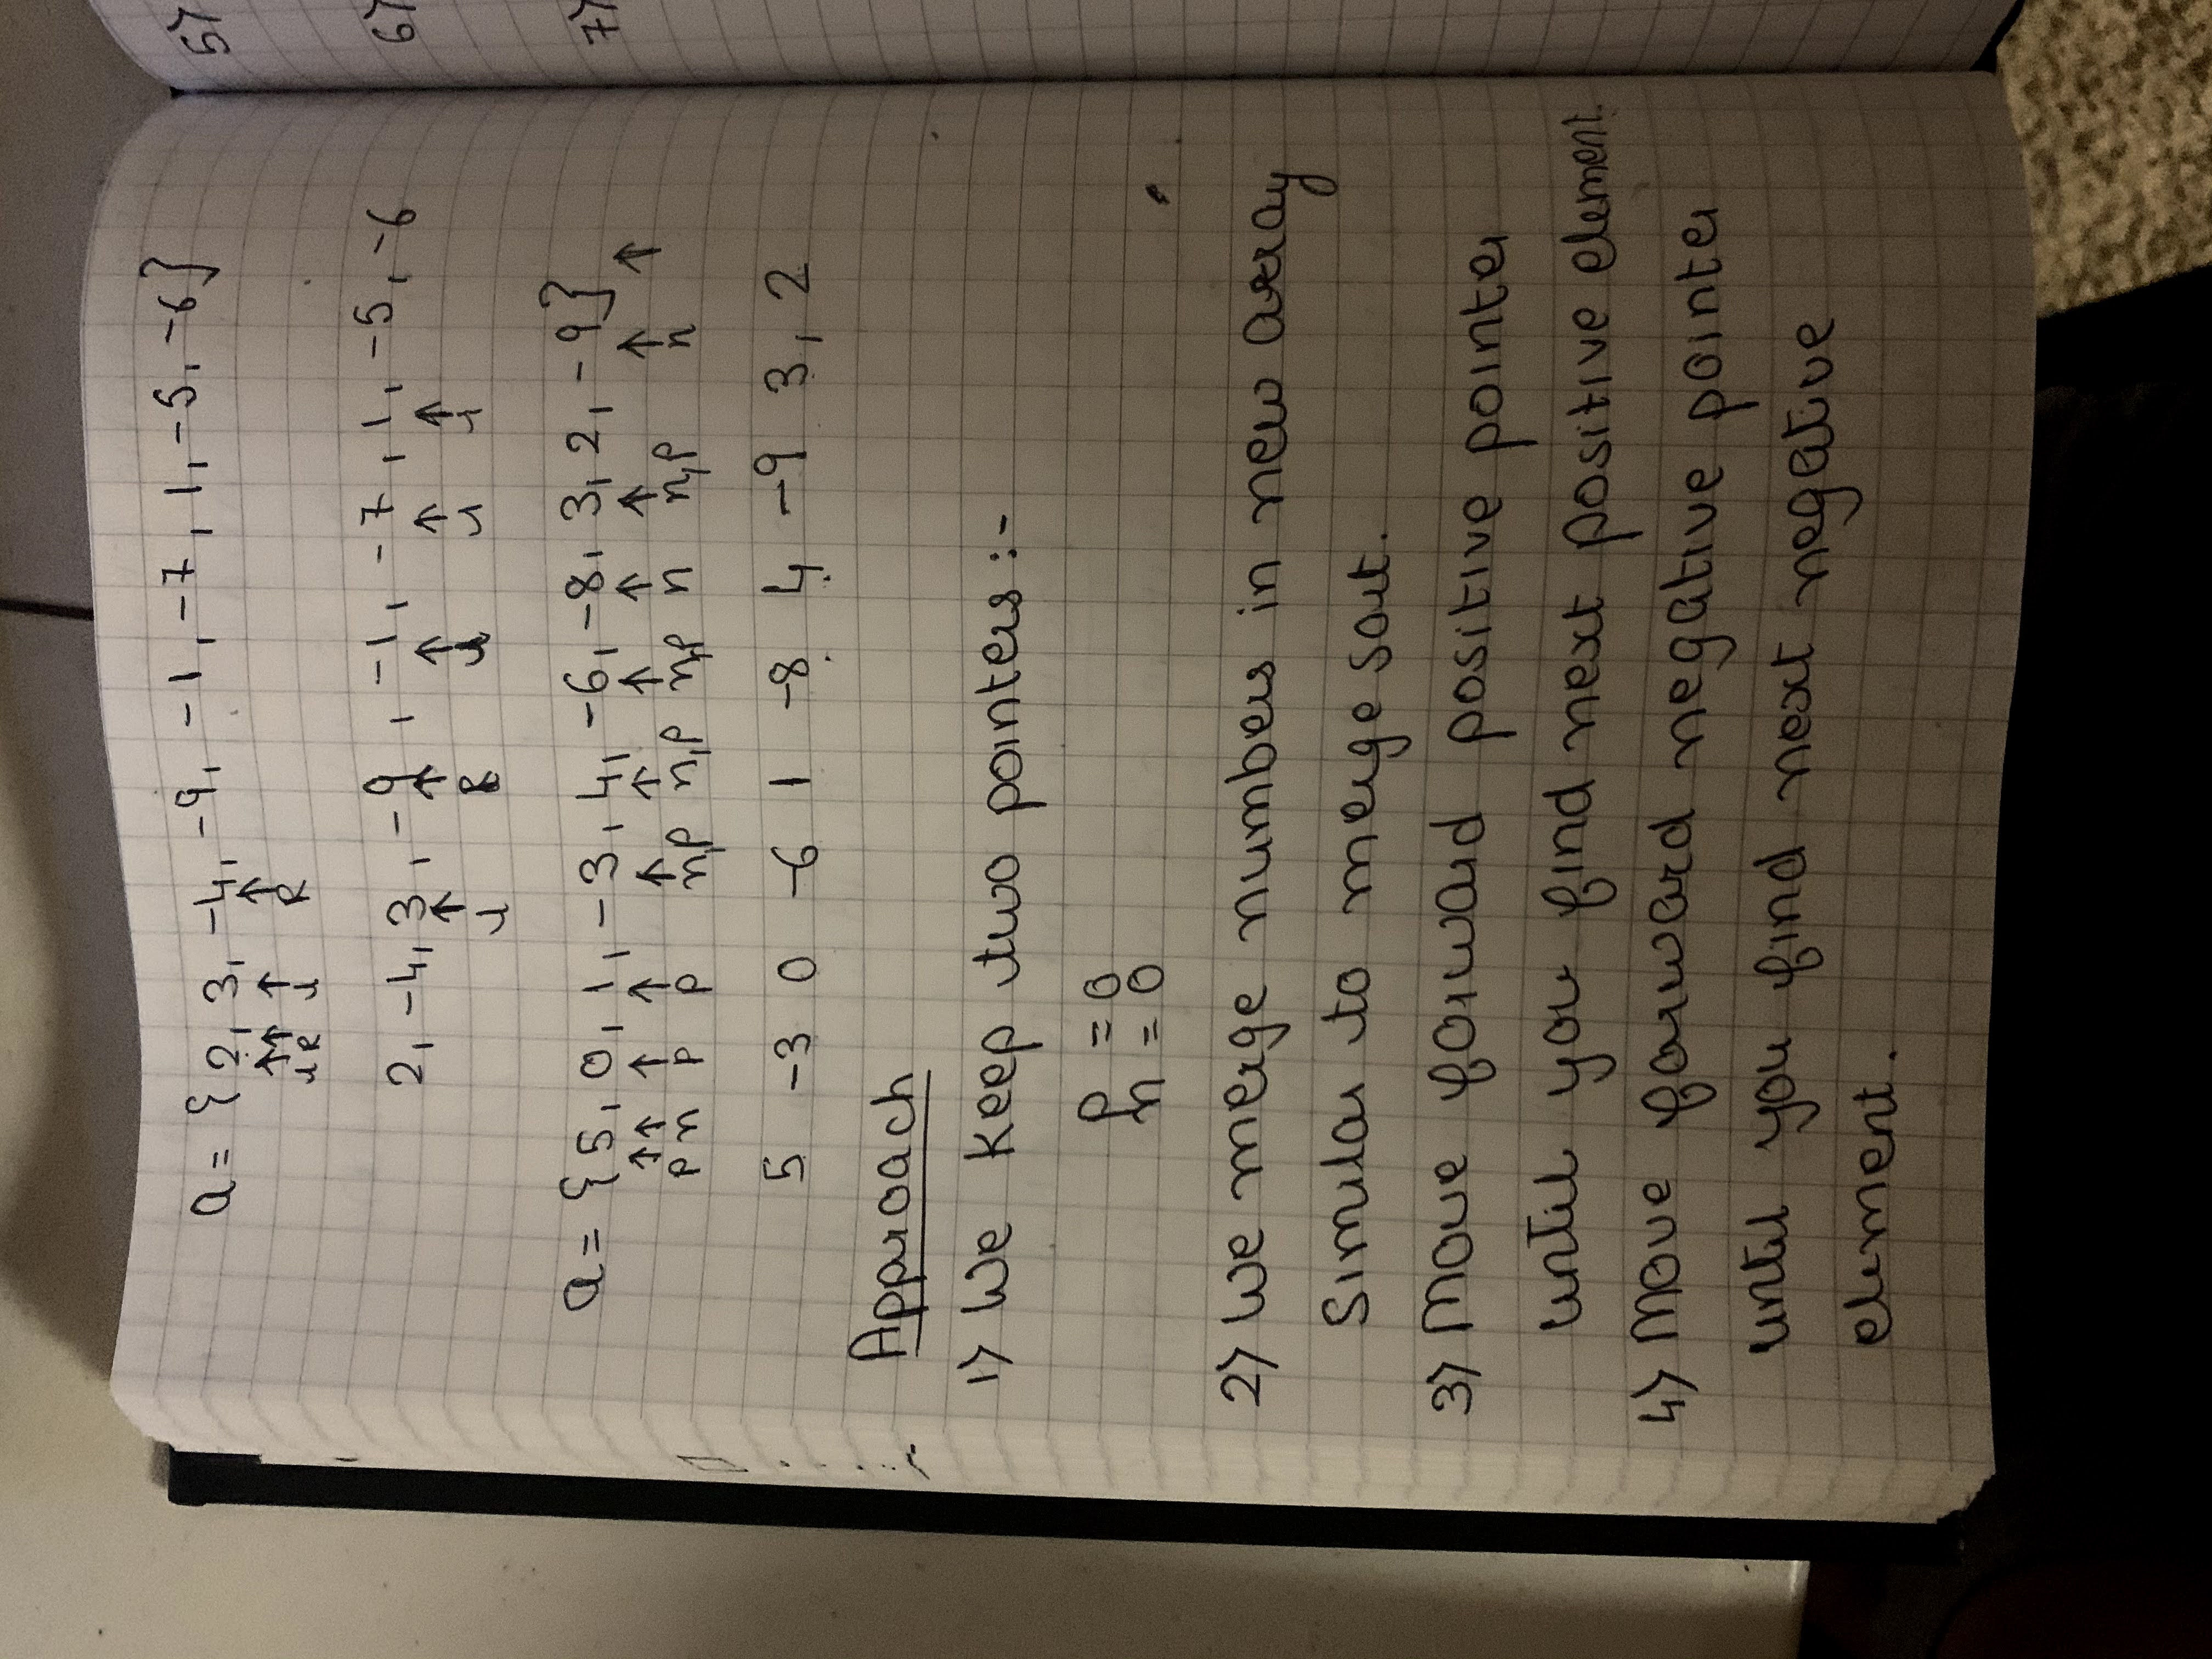 a = {2, 3, -4, -9, -1, -7, 1, -5, -6}
↑↑ ↑ ↑
l R l R
2, -4, 3, -9, -1, -7, 1, -5, -6
↑ ↑ ↑ ↑ ↑
l R l l l
a = {5, 0, 1, -3, 4, -6, -8, 3, 2, -9}
↑↑ ↑ ↑ ↑ ↑ ↑ ↑ ↑ ↑ ↑
p n p p n,p n,p n,p n n,p n
5 -3 0 -6 1 -8 4 -9 3, 2
Approach
1) We keep two pointers :-
p = 0
n = 0
2) We merge numbers in new array
similar to merge sort.
3) Move forward positive pointer
until you find next positive element.
4) Move forward negative pointer
until you find next negative
element.
5)
6)
7)